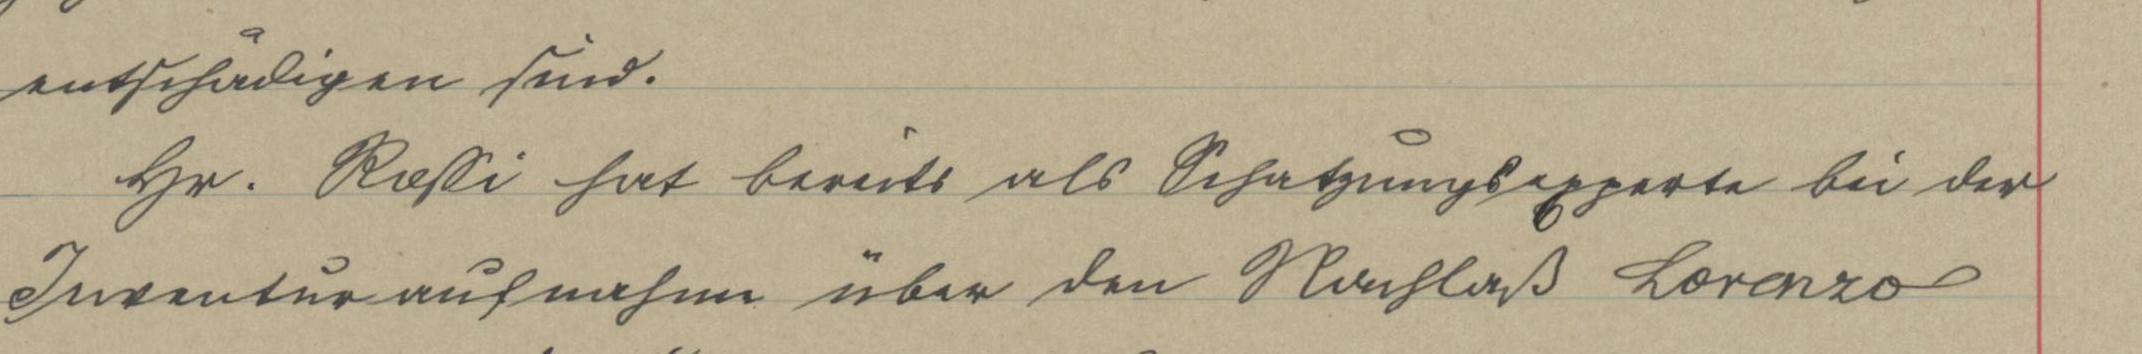 entschädigen sind.
Hr. Rossi hat bereits als Schatzungsexperte bei der
Inventuraufnahme über den Nachlaß Lorenzo